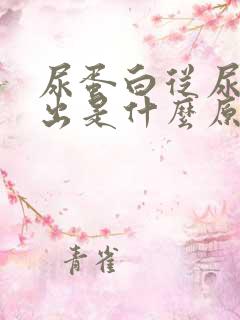 尿蛋白從尿
出是什麼原
青雀